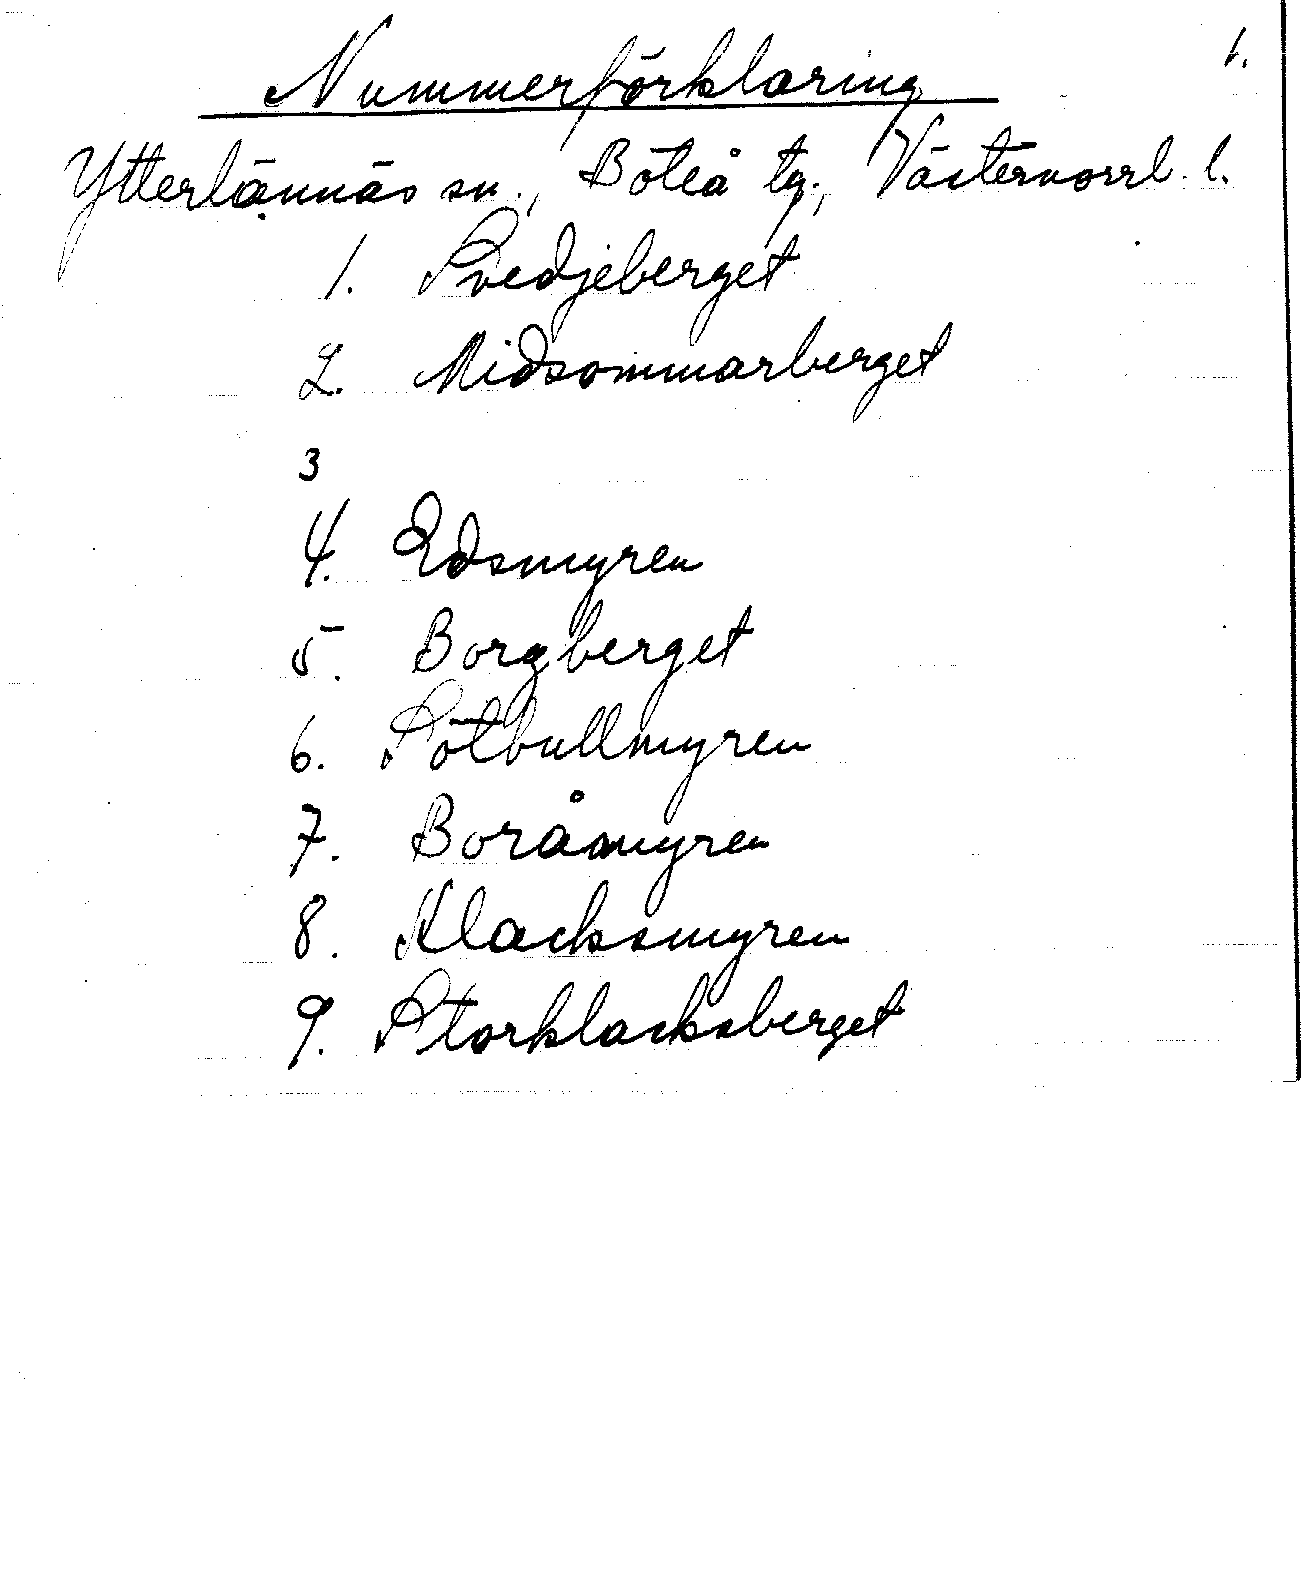 1.
Nummerförklaring
Ytterlännäs sn., Boteå tg., Västernorrl. l.
1. Svedjeberget
2. Midsommarberget
3
4. Edsmyren
5. Borgberget
6. Sötbullmyren
7. Boråmyren
8. Klacksmyren
9. Storklacksberget